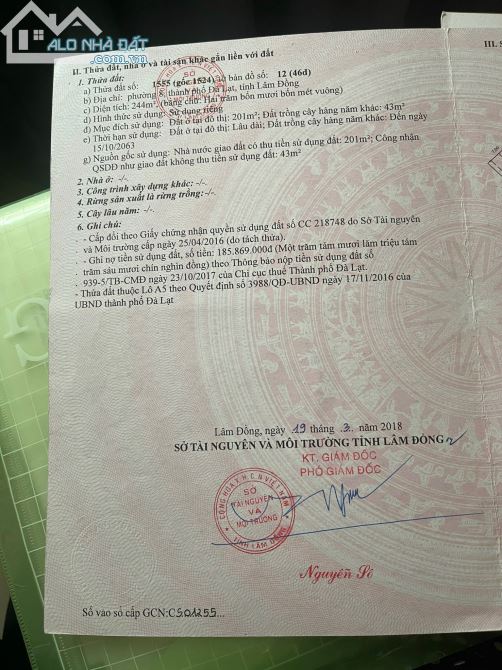 ALO NHÀ ĐẤT
II. Thửa đất, nhà ở và tài sản khác gắn liền với đất
III. S
1. Thửa đất:
a) Thửa đất số: 1555 (gốc 1524), tờ bản đồ số: 12 (46d)
b) Địa chỉ: phường 8, thành phố Đà Lạt, tỉnh Lâm Đồng
c) Diện tích: 244m², (bằng chữ: Hai trăm bốn mươi bốn mét vuông)
d) Hình thức sử dụng: Sử dụng riêng
đ) Mục đích sử dụng: Đất ở tại đô thị: 201m²; Đất trồng cây hàng năm khác: 43m²
e) Thời hạn sử dụng: Đất ở tại đô thị: Lâu dài; Đất trồng cây hàng năm khác: Đến ngày
15/10/2063
g) Nguồn gốc sử dụng: Nhà nước giao đất có thu tiền sử dụng đất: 201m²; Công nhận
QSDĐ như giao đất không thu tiền sử dụng đất: 43m²
2. Nhà ở: -/-
3. Công trình xây dựng khác: -/-
4. Rừng sản xuất là rừng trồng: -/-
5. Cây lâu năm: -/-
6. Ghi chú:
- Cấp đổi theo Giấy chứng nhận quyền sử dụng đất số CC 218748 do Sở Tài nguyên
và Môi trường cấp ngày 25/04/2016 (do tách thửa).
- Ghi nợ tiền sử dụng đất, số tiền: 185.869.000đ (Một trăm tám mươi lăm triệu tám
trăm sáu mươi chín nghìn đồng) theo Thông báo nộp tiền sử dụng đất số
939-5/TB-CMĐ ngày 23/10/2017 của Chi cục thuế Thành phố Đà Lạt.
- Thửa đất thuộc Lô A5 theo Quyết định số 3988/QĐ-UBND ngày 17/11/2016 của
UBND thành phố Đà Lạt
Lâm Đồng, ngày 19 tháng 3. năm 2018
SỞ TÀI NGUYÊN VÀ MÔI TRƯỜNG TỈNH LÂM ĐỒNG
KT. GIÁM ĐỐC
PHÓ GIÁM ĐỐC
CỘNG HÒA X.H.C.N VIỆT NAM
SỞ
TÀI NGUYÊN
VÀ
MÔI TRƯỜNG
TỈNH LÂM ĐỒNG
Nguyễn
Số vào sổ cấp GCN:CS01255...